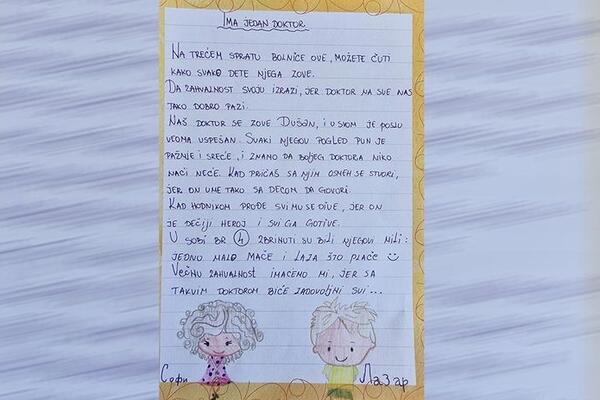 IMA JEDAN DOKTOR
NA TREĆEM SPRATU BOLNICE OVE, MOŽETE ČUTI
KAKO SVAKO DETE NJEGA ZOVE.
DA ZAHVALNOST SVOJU IZRAZI, JER DOKTOR NA SVE NAS
TAKO DOBRO PAZI.
NAŠ DOKTOR SE ZOVE DUŠAN, I U SVOM JE POSLU
VEOMA USPEŠAN. SVAKI NJEGOV POGLED PUN JE
PAŽNJE I SREĆE, I ZNAMO DA BOLJEG DOKTORA NIKO
NAĆI NEĆE. KAD PRIČAŠ SA NJIM OSMEH SE STVORI,
JER ON UME TAKO SA DECOM DA GOVORI.
KAD HODNIKOM PROĐE SVI MU SE DIVE, JER ON
JE DEČIJI HEROJ I SVI GA GOTIVE.
U SOBI BR 4 ZBRINUTI SU BILI NJEGOVI MILI:
JEDNO MALO MAČE I LAJA ŠTO PLAČE ☺
VEČNU ZAHVALNOST IMAĆEMO MI, JER SA
TAKVIM DOKTOROM BIĆE ZADOVOLJNI SVI...
Софи Лазар